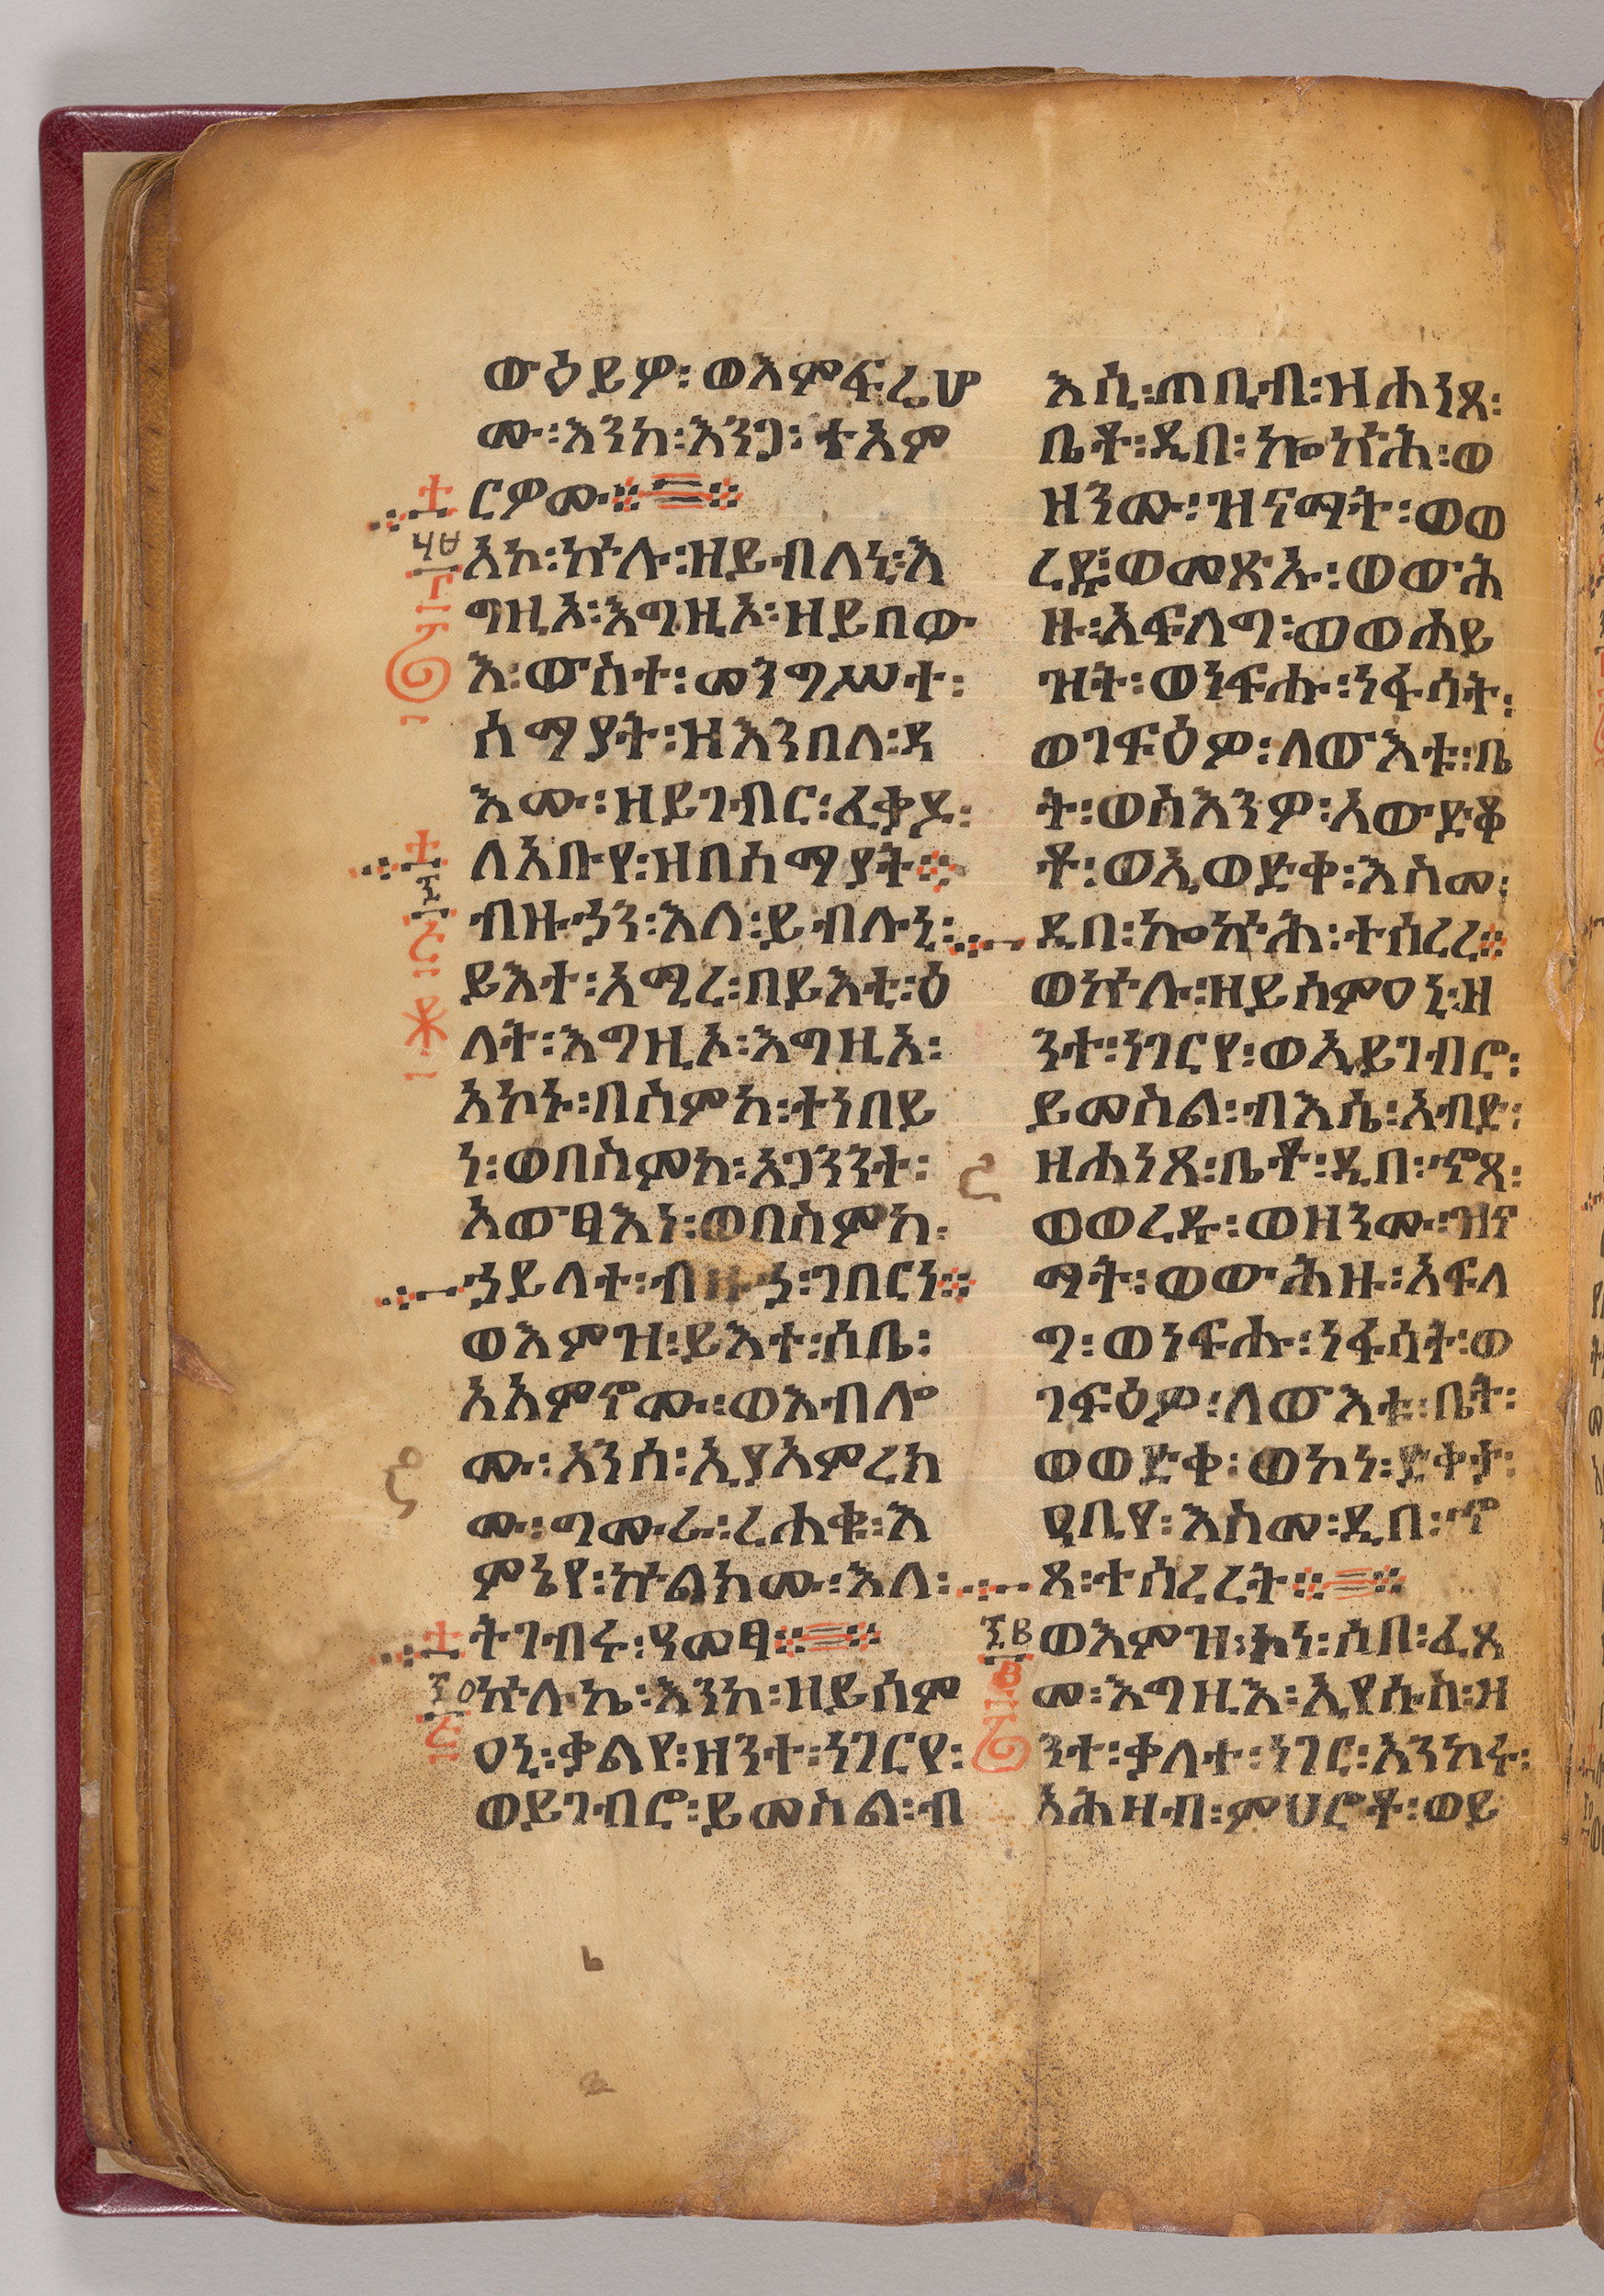 ውዕይዎ፡ወእምፍሬሆ
ሙ፡እንከ፡እንጋ፡ተአም
ርዎሙ።
አኮ፡ኵሉ፡ዘይብለኒ፡እ
ግዚኦ፡እግዚኦ፡ዘይበው
እ፡ውስተ፡መንግሥተ፡
ሰማያት፡ዝእንበለ፡ዳ
እሙ፡ዘይገብር፡ፈቃዶ፡
ለአቡየ፡ዝበሰማያት።
ብዙኃን፡እለ፡ይብሉኒ፡
ይእተ፡አሚረ፡በይእቲ፡ዕ
ለት፡እግዚኦ፡እግዚኦ፡
አኮኑ፡በስምከ፡ተነበይ
ነ፡ወበስምከ፡አጋንንተ፡
አውፃእነ፡ወበስምከ፡
ኃይላተ፡ብዙኃ፡ገበርነ።
ወእምዝ፡ይእተ፡ሰቤ፡
አአምኖሙ፡ወእብሎ
ሙ፡አንሰ፡ኢያአምረክ
ሙ፡ግሙራ፡ረሐቁ፡እ
ምኔየ፡ኵልክሙ፡እለ፡
ትገብሩ፡ዓመፃ።
ኵሉኬ፡እንከ፡ዘይሰም
ዐኒ፡ቃልየ፡ዘንተ፡ነገርየ፡
ወይገብሮ፡ይመስል፡ብ
እሲ፡ጠቢብ፡ዝሐነጸ፡
ቤቶ፡ዲበ፡ኰኵሕ፡ወ
ዘንሙ፡ዝናማት፡ወወ
ረዱ፡ወመጽኡ፡ወውሕ
ዙ፡አፍላግ፡ወወሐይ
ዝት፡ወነፍሑ፡ነፋሳት፡
ወገፍዕዎ፡ለውእቱ፡ቤ
ት፡ወስእንዎ፡አውድቆ
ቶ፡ወኢወድቀ፡እስመ፡
ዲበ፡ኰኵሕ፡ተሰረረ።
ወኵሉ፡ዘይሰምዐኒ፡ዘ
ንተ፡ነገርየ፡ወኢይገብሮ፡
ይመስል፡ብእሴ፡አብድ፡
ዘሐነጸ፡ቤቶ፡ዲበ፡ኆጻ፡
ወወረዱ፡ወዘንሙ፡ዝና
ማት፡ወውሕዙ፡አፍላ
ግ፡ወነፍሑ፡ነፋሳት፡ወ
ገፍዕዎ፡ለውእቱ፡ቤት፡
ወወድቀ፡ወኮነ፡ድቀታ፡
ዐቢየ፡እስመ፡ዲበ፡ኆ
ጻ፡ተሰረረት።
ወእምዝ፡ኮነ፡ሰበ፡ፈጸ
መ፡እግዚእ፡ኢየሱስ፡ዝ
ንተ፡ቃላተ፡ነገር፡አንከሩ፡
አሕዛብ፡ምህሮቶ፡ወይ